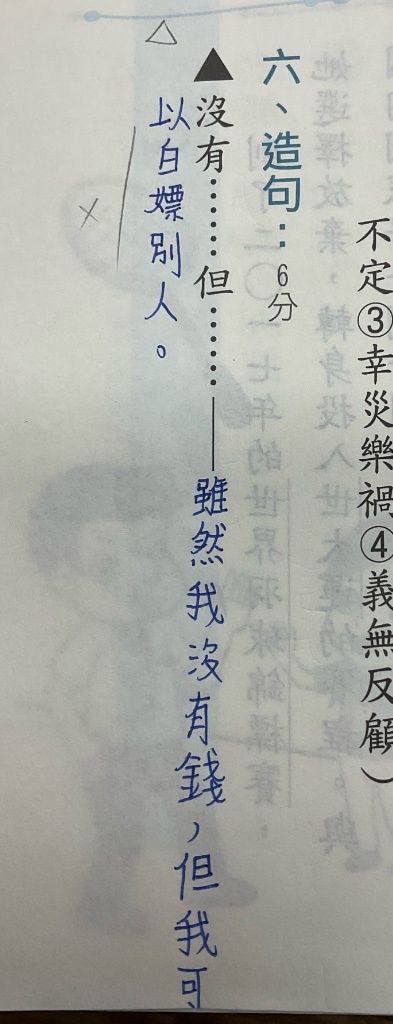 不定③幸災樂禍④義無反顧）
六、造句：6分
▲沒有……但……——雖然我沒有錢，但我可
以白嫖別人。